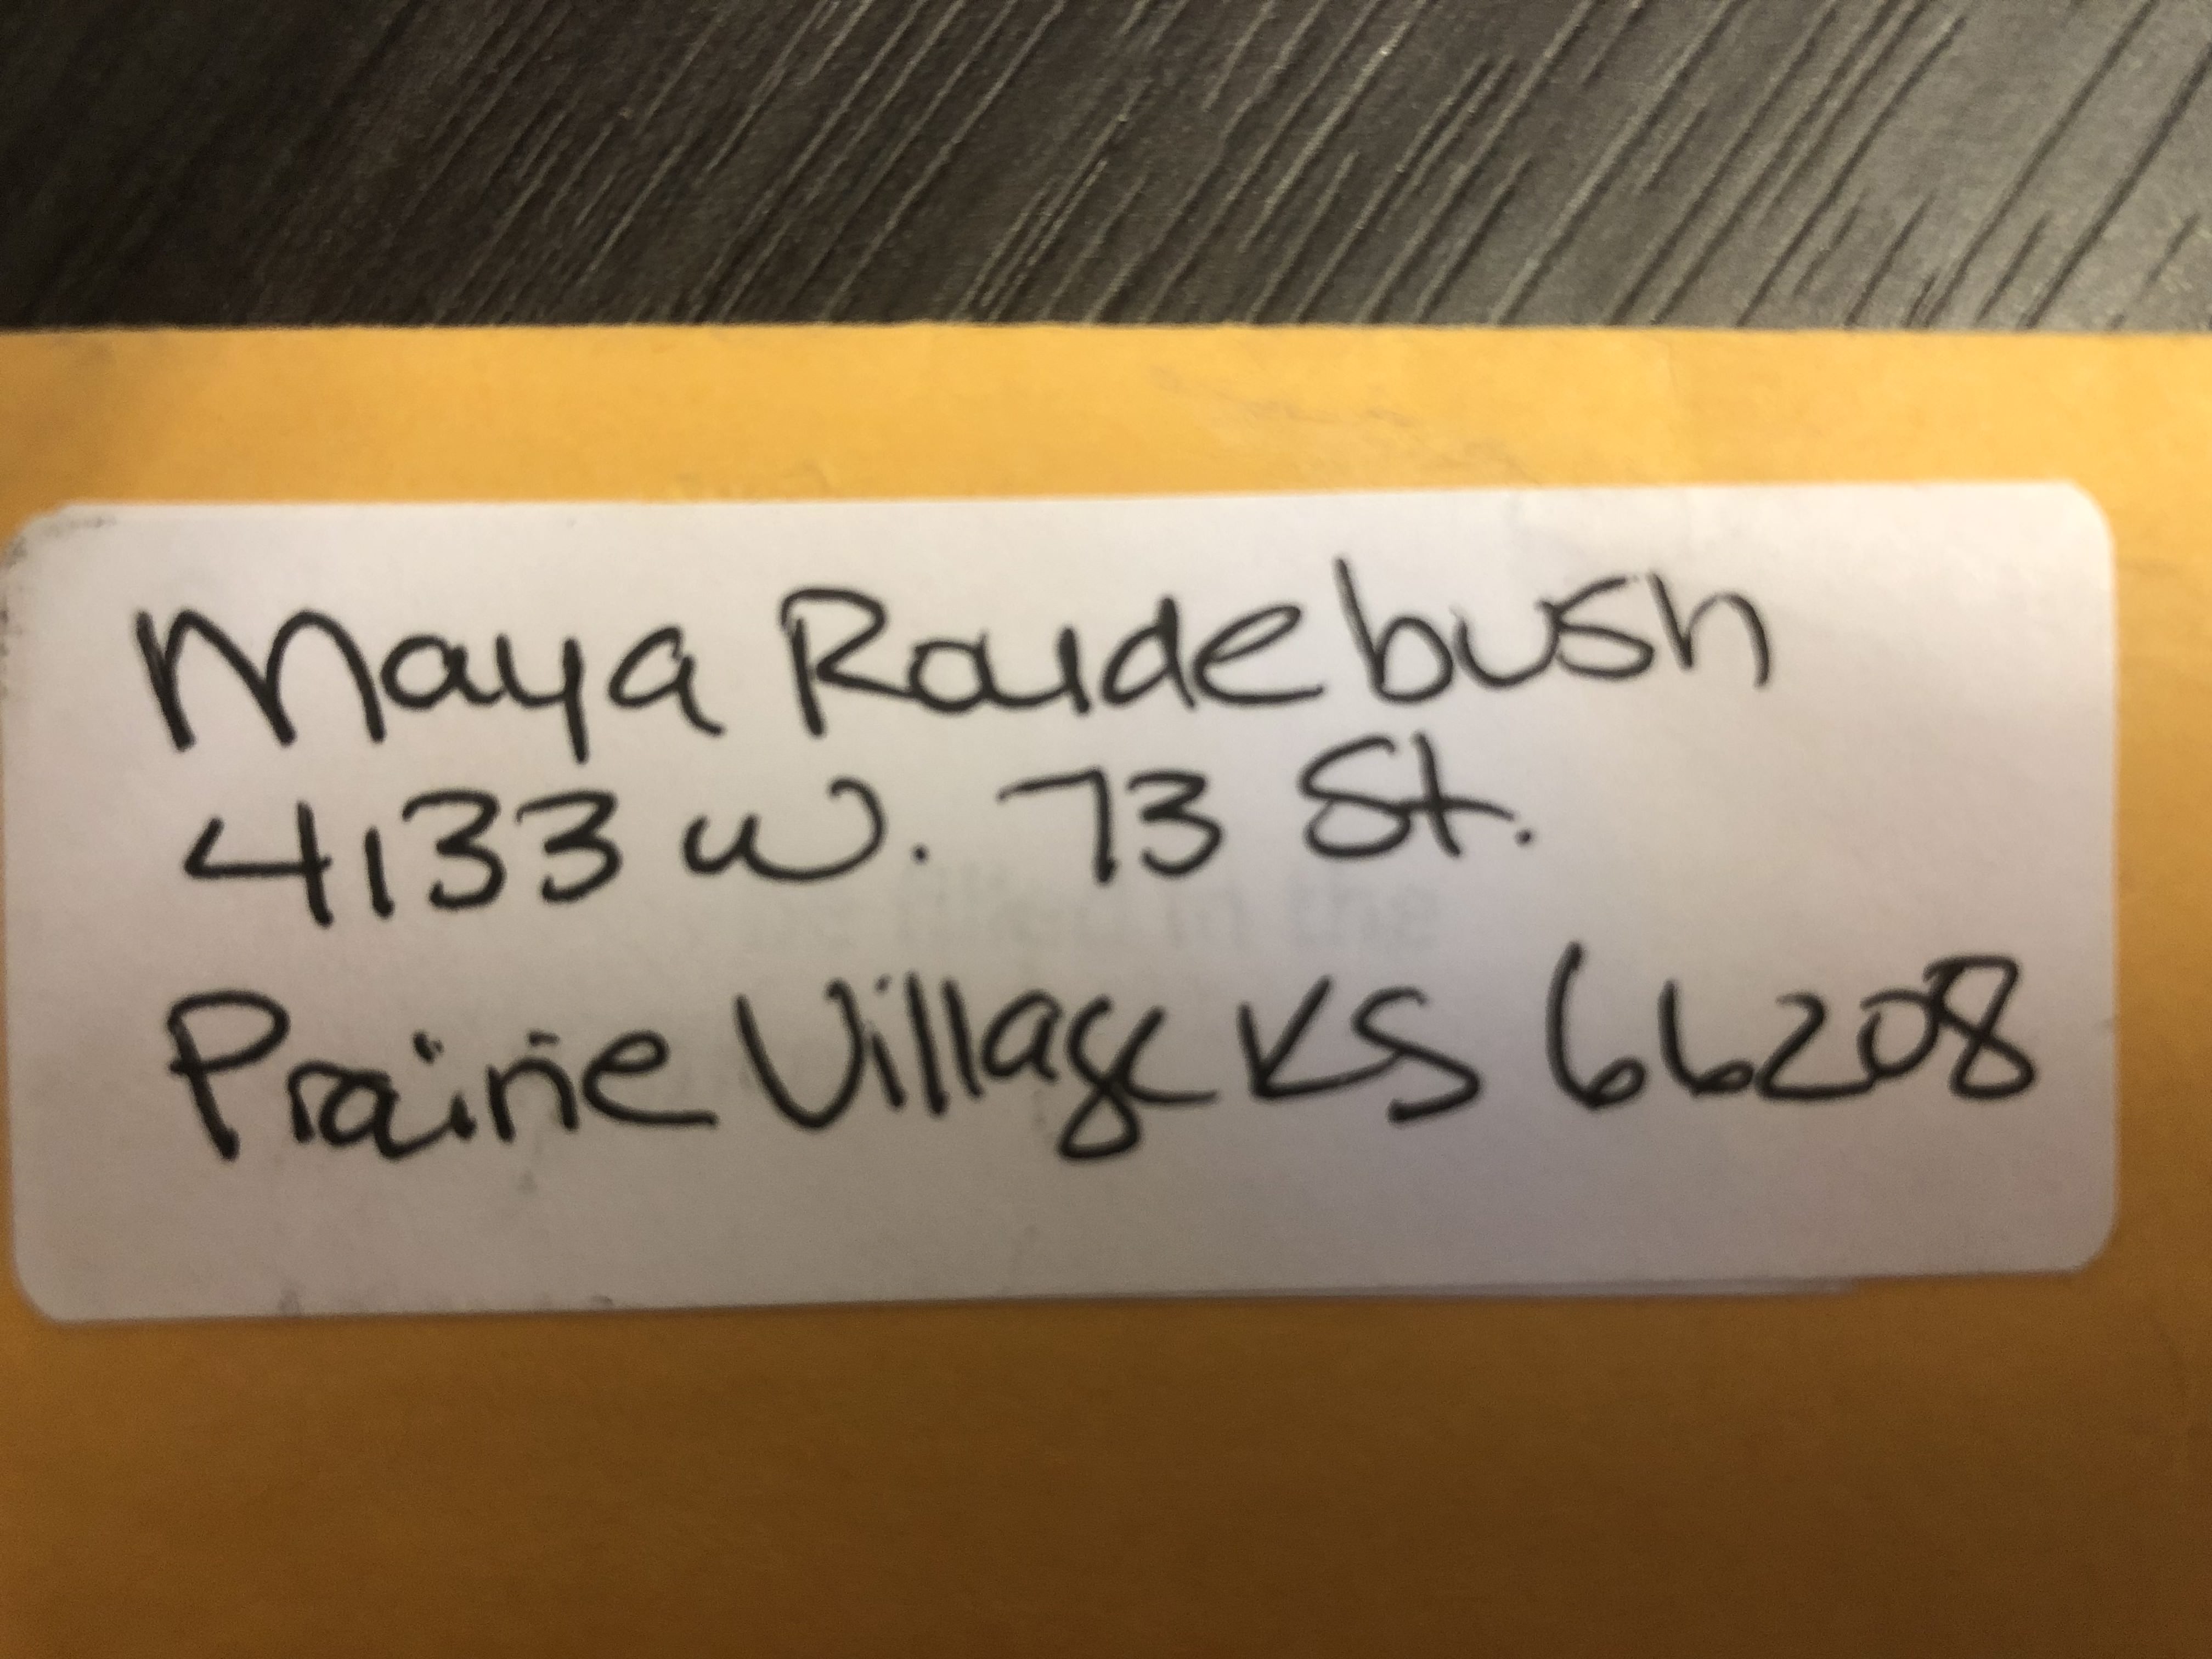 Maya Raudebush
4133 W. 73 St.
Prairie Village KS 66208